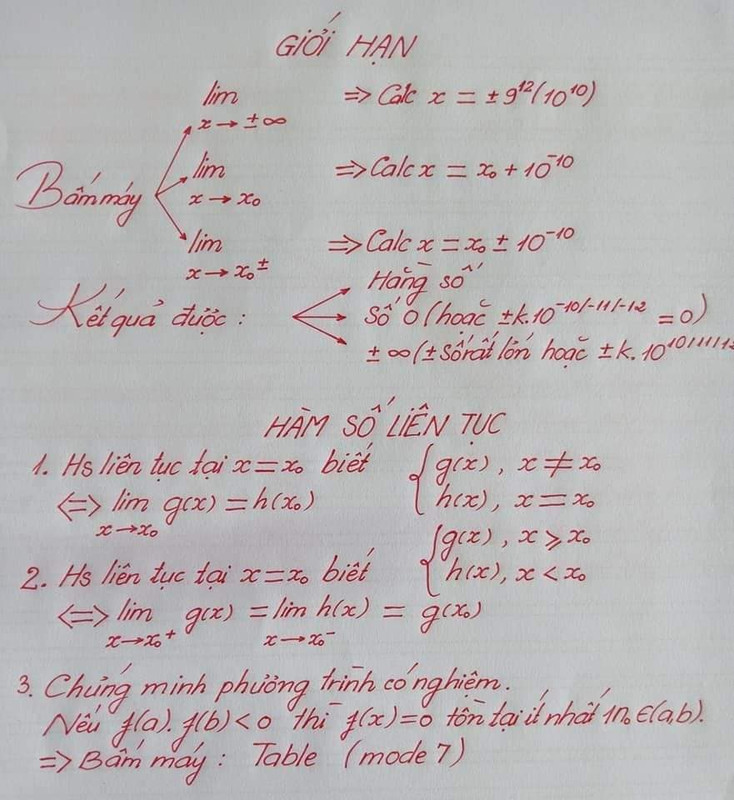 GIỚI HẠN
lim x→±∞ => Calc x = ±9^12(10^10)
Bấm máy
lim x→x₀ => Calc x = x₀ + 10^-10
lim x→x₀^± => Calc x = x₀ ± 10^-10
Kết quả được :
Hằng số
Số 0 (hoặc ±k.10^-10/-11/-12 = 0)
±∞ (±số rất lớn hoặc ±k.10^10/11/12
HÀM SỐ LIÊN TỤC
1. Hs liên tục tại x = x₀ biết { g(x), x ≠ x₀
h(x), x = x₀
<=> lim x→x₀ g(x) = h(x₀)
2. Hs liên tục tại x = x₀ biết { g(x), x ⩾ x₀
h(x), x < x₀
<=> lim x→x₀^+ g(x) = lim x→x₀^- h(x) = g(x₀)
3. Chứng minh phương trình có nghiệm.
Nếu f(a).f(b)<0 thì f(x)=0 tồn tại ít nhất 1n₀ ∈(a,b).
=> Bấm máy : Table (mode 7)